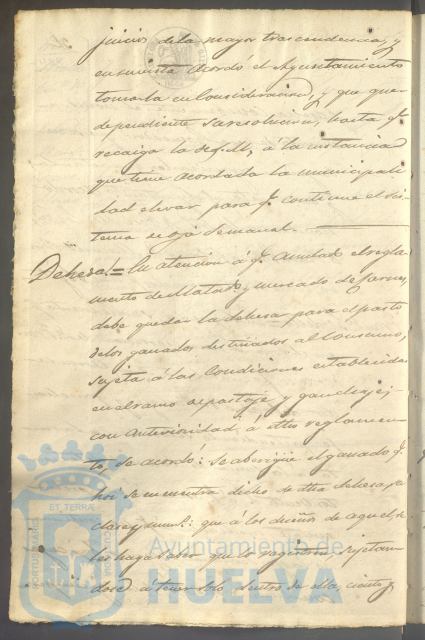 juicios de la mayor trascendencia, y
en su vista acordó el Ayuntamiento
tomarla en Consideracion, y que que-
de pendiente su resolucion, hasta qe.
recaiga la de S.M. á la instancia
que tiene acordada la municipali-
dad elevar para qe. continue el sis-
tema
semanal.
Dehesa = En atencion á qe. anulado el regla-
mento de Matadº. y mercado de Carnes,
debe quedar la dehesa para el pasto
de los ganados destinados al Consumo,
sujeta á las Condiciones establecidas
en el ramo de pastaje, y
con anterioridad á dho reglamen-
to, se acordó: Se aberigüe el ganado qe.
hoi se encuentra dicho
dehesa, su
clase y num.º: que á los dueños de aquel se
le haga saber que lo
sujetan-
dose á tener solo dentro de ella, ciento y
ET TERRÆ
PORTUS MARIS
CUSTODIA
Ayuntamiento de
HUELVA